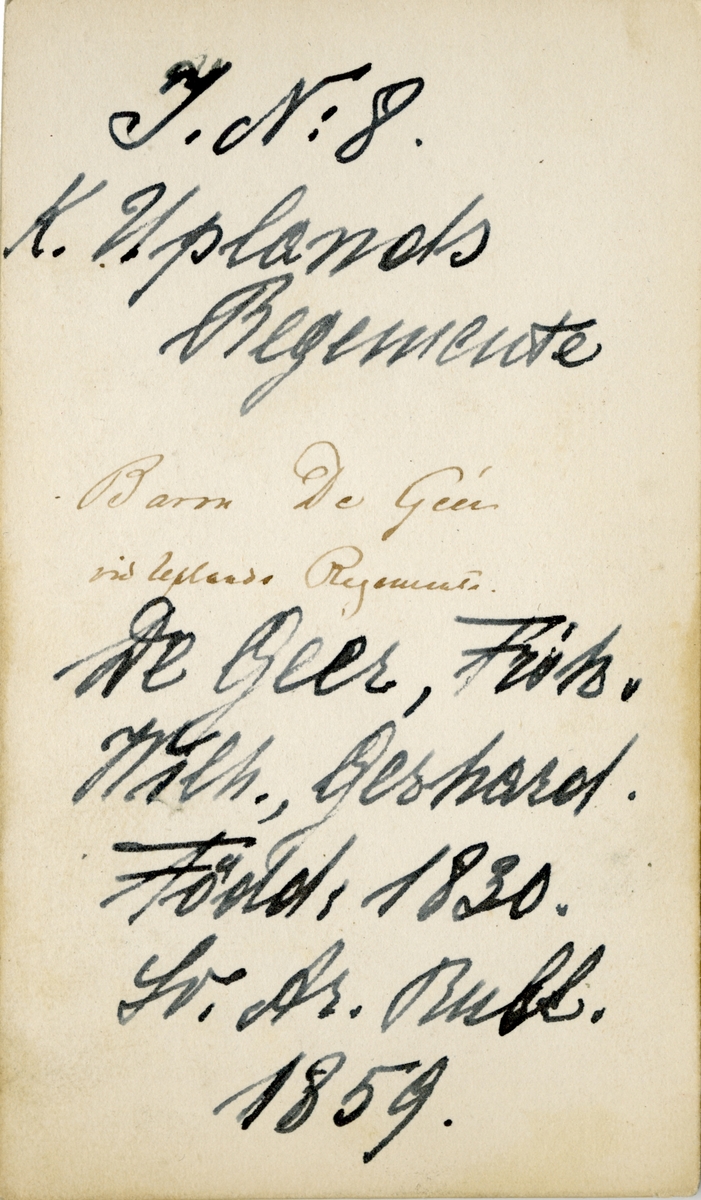 I. N:8.
K. Uplands
Regemente
Baron De Geer
vid Uplands Regemente.
De Geer, Frih.
Wilh., Gerhard.
Född: 1830.
Sv. Ar. Rull.
1859.